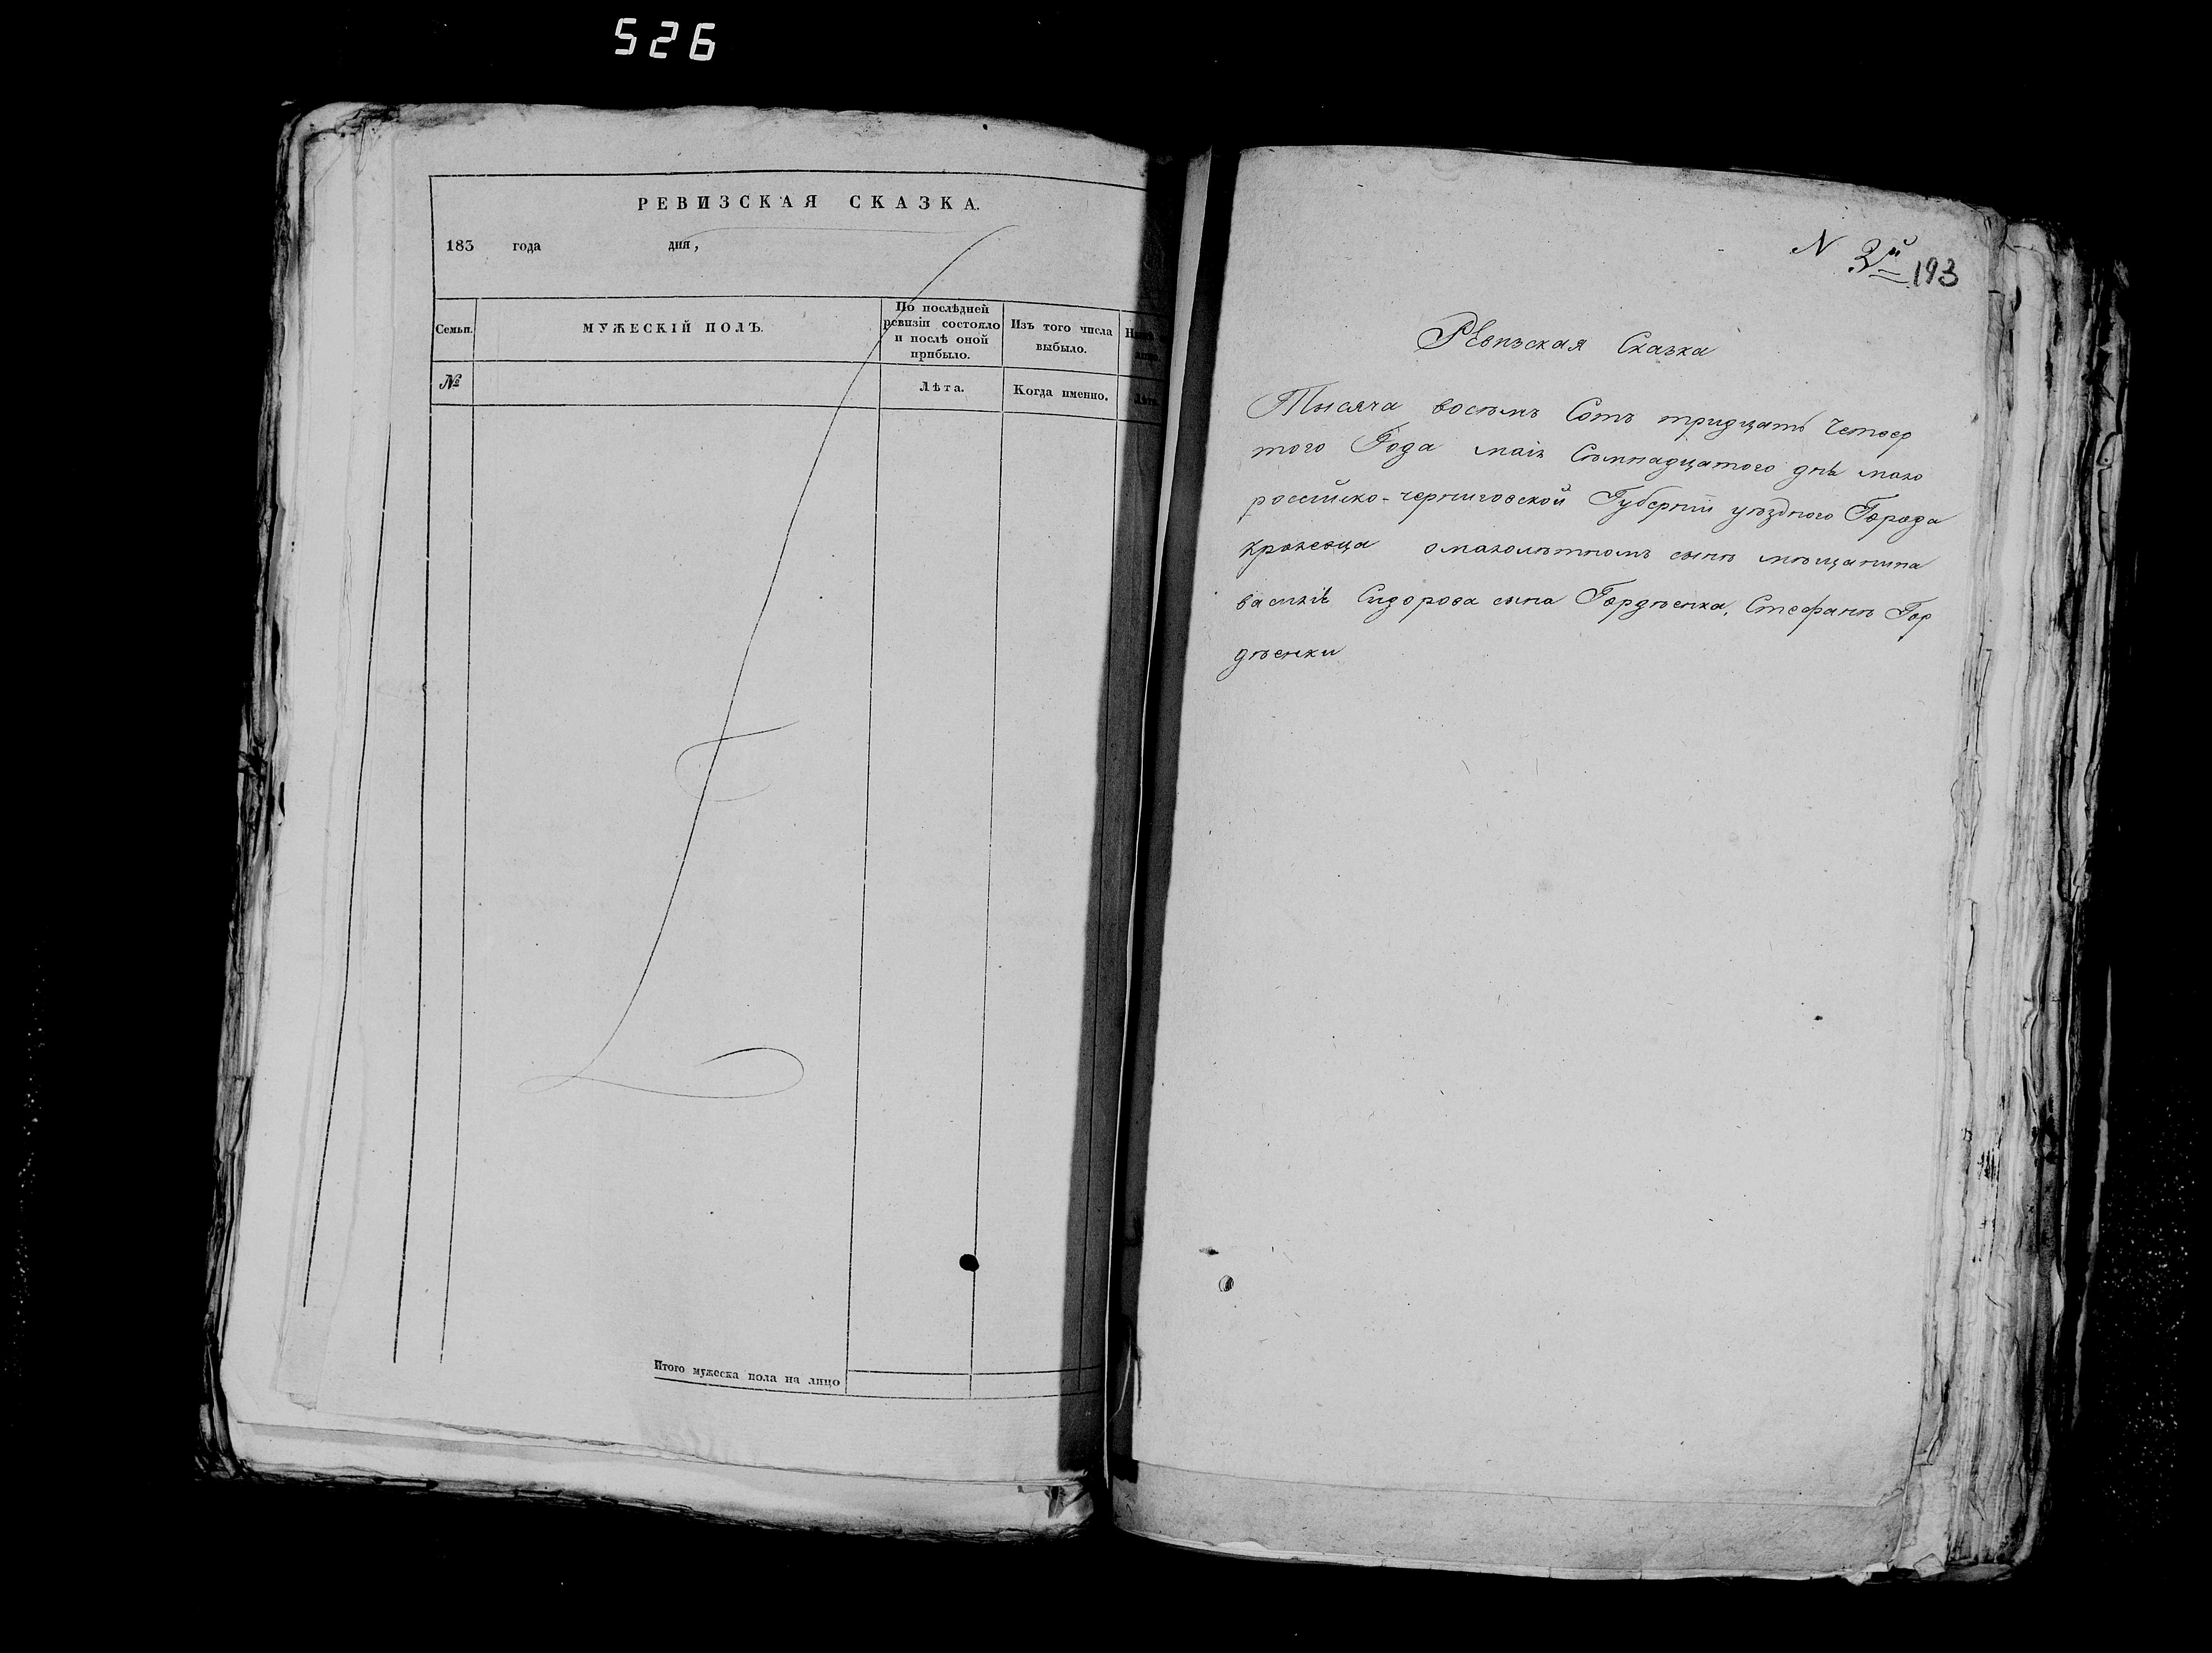 526
РЕВИЗСКАЯ СКАЗКА.
183 года дня,
Семьи. МУЖЕСКІЙ ПОЛЪ. По послѣдней ревизіи состояло и послѣ оной прибыло. Изъ того числа выбыло.
№ Лѣта. Когда именно. Лѣта.
Итого мужеска пола на лицо
N 3й 193
Ревизская Сказка
Тысяча восѣмъ Сотъ тридцать Четвер
того Года маія Сѣмнадцатого днѣ мало
россійско-черниговской Губерніи уѣздного Города
Кролевца омалолѣтномъ сынѣ мѣщанина
василіѣ Сидорова сына Гордѣенка, Стефанѣ Гор
дѣенки